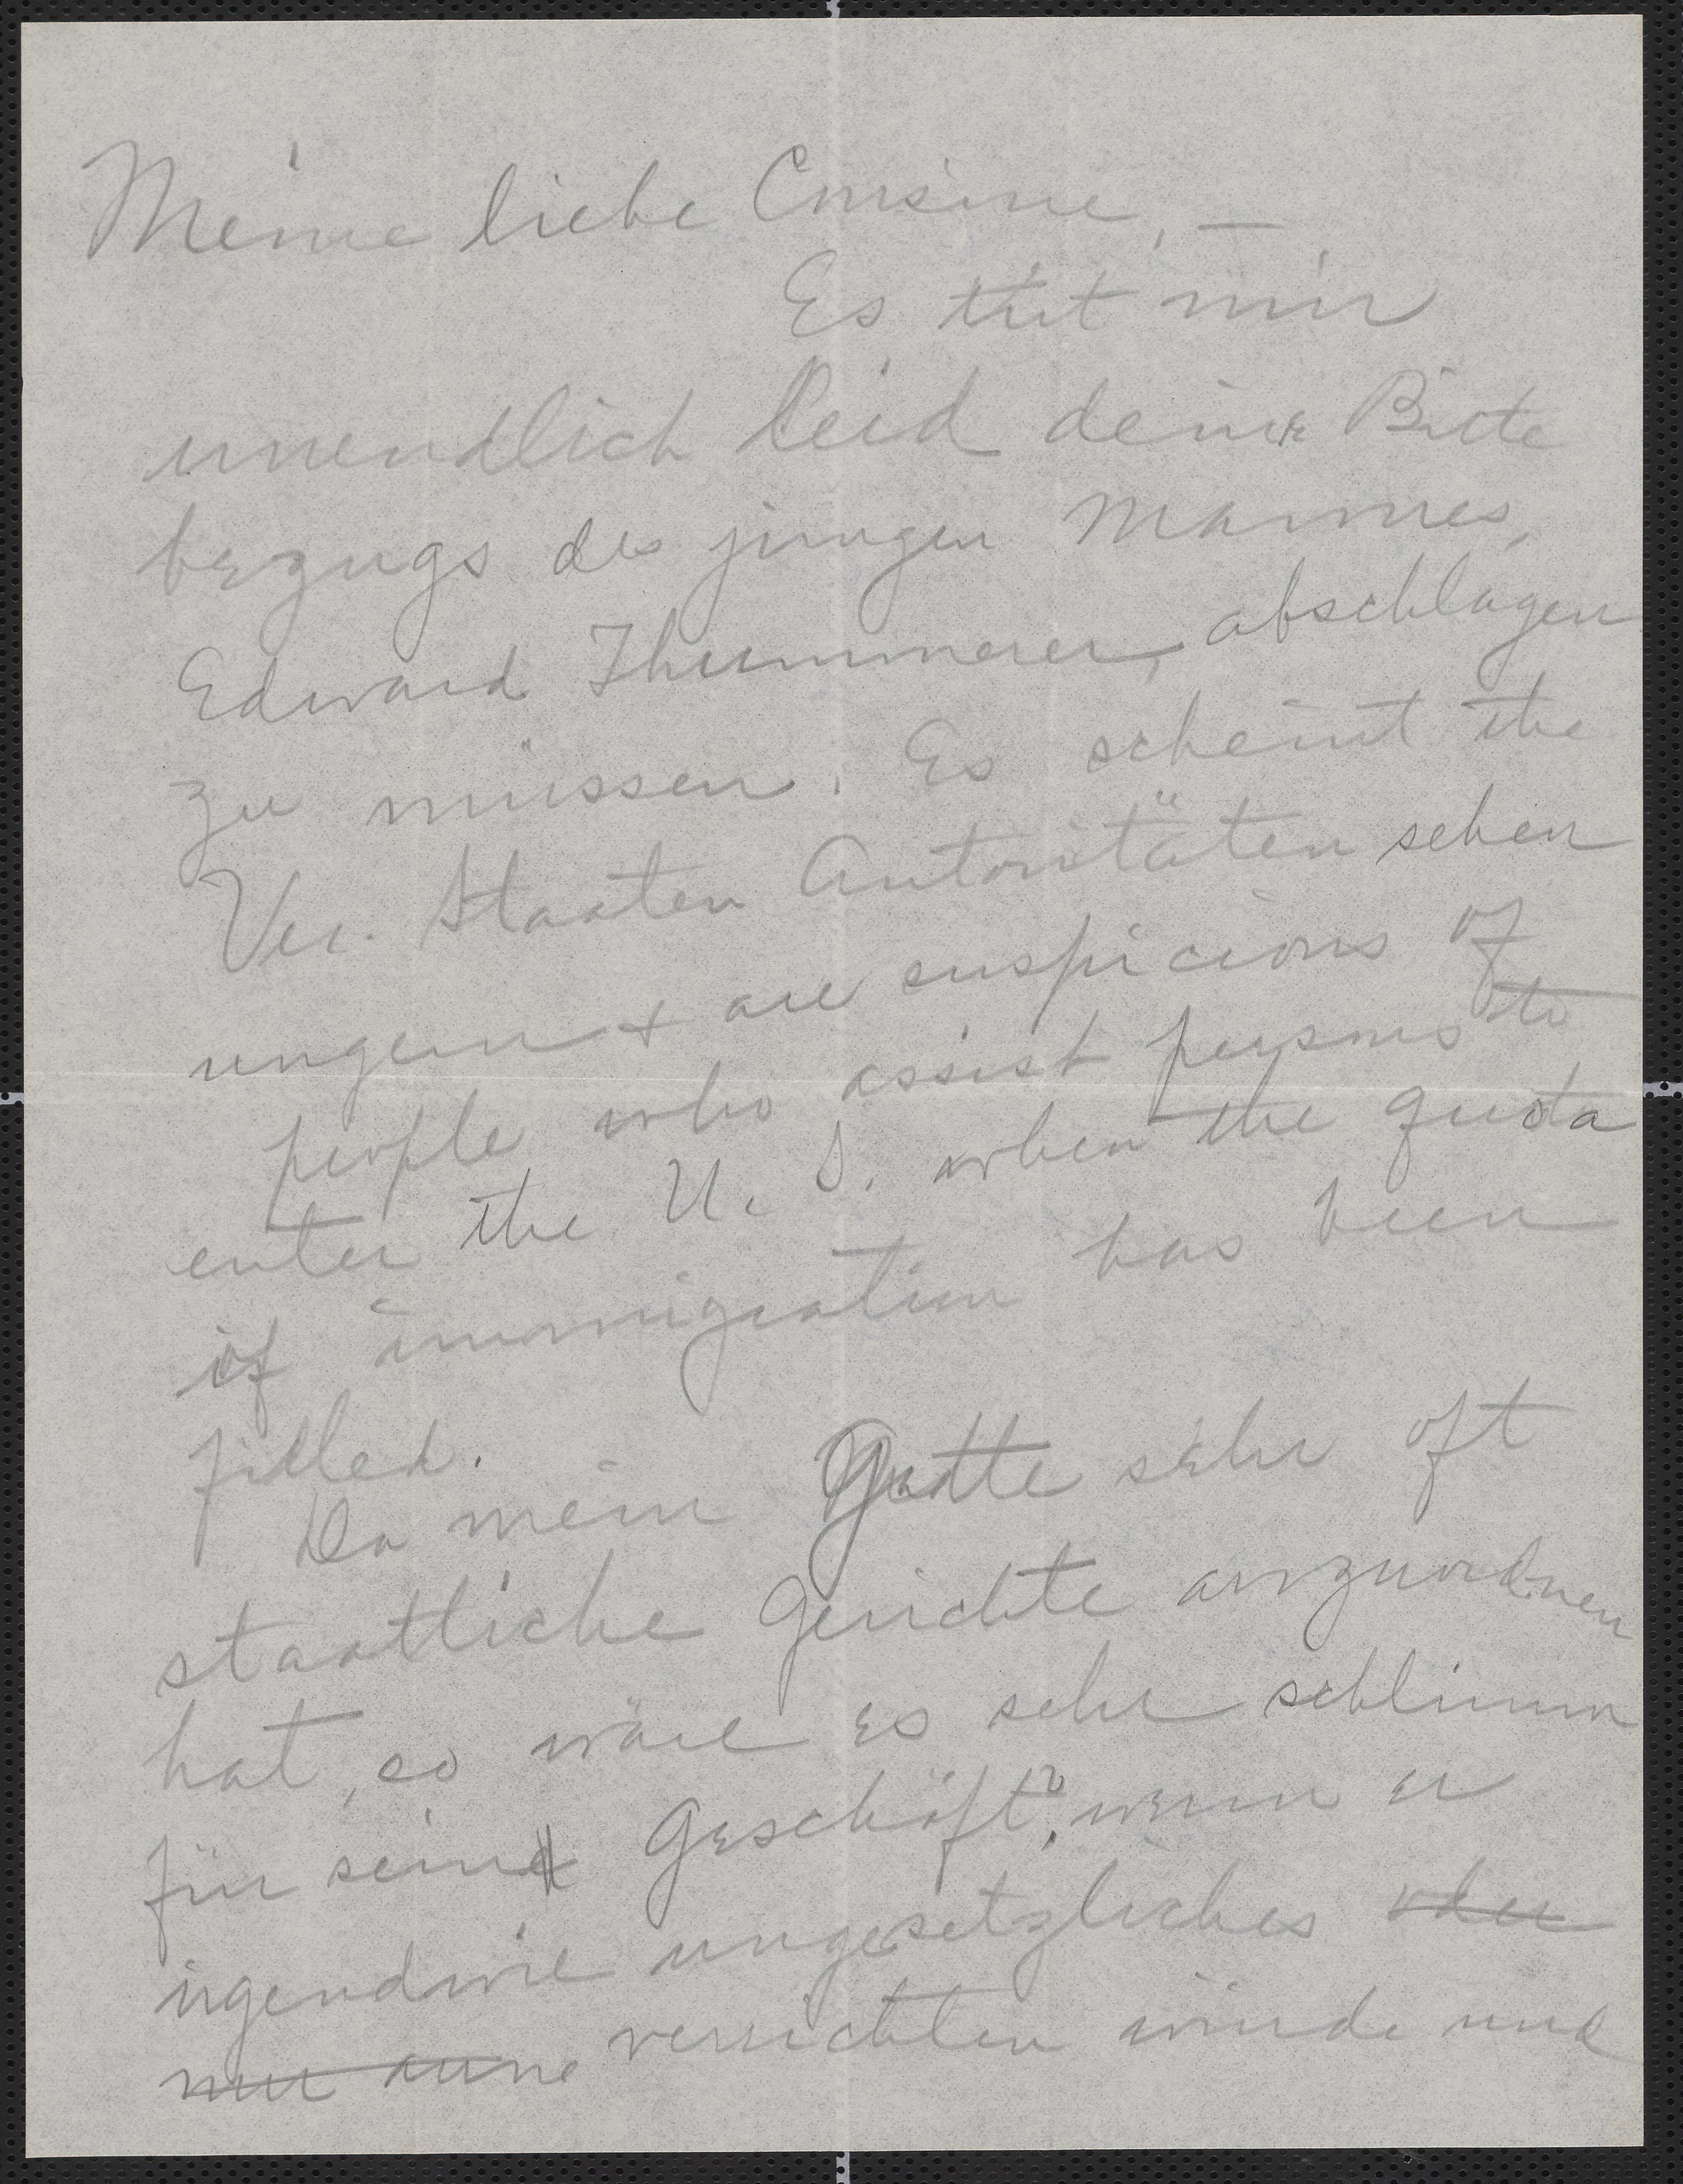 Meine liebe Cousine, —
Es tut mir
unendlich leid deine Bitte
bezugs des jungen Mannes,
Edward Thummerer, abschlagen
zu müssen. Es scheint the
Ver. Staaten Autoritäten sehen
ungern + are suspicious of
people who assist persons to
enter the U. S. when the quota
of immigration has been
filled.
Da mein Gatte sehr oft
staatliche Gerichte anzuordnen
hat, so wäre es sehr schlimm
für sein Geschäft, wenn er
irgendwie ungesetzliches oder
nur verrichten würde und